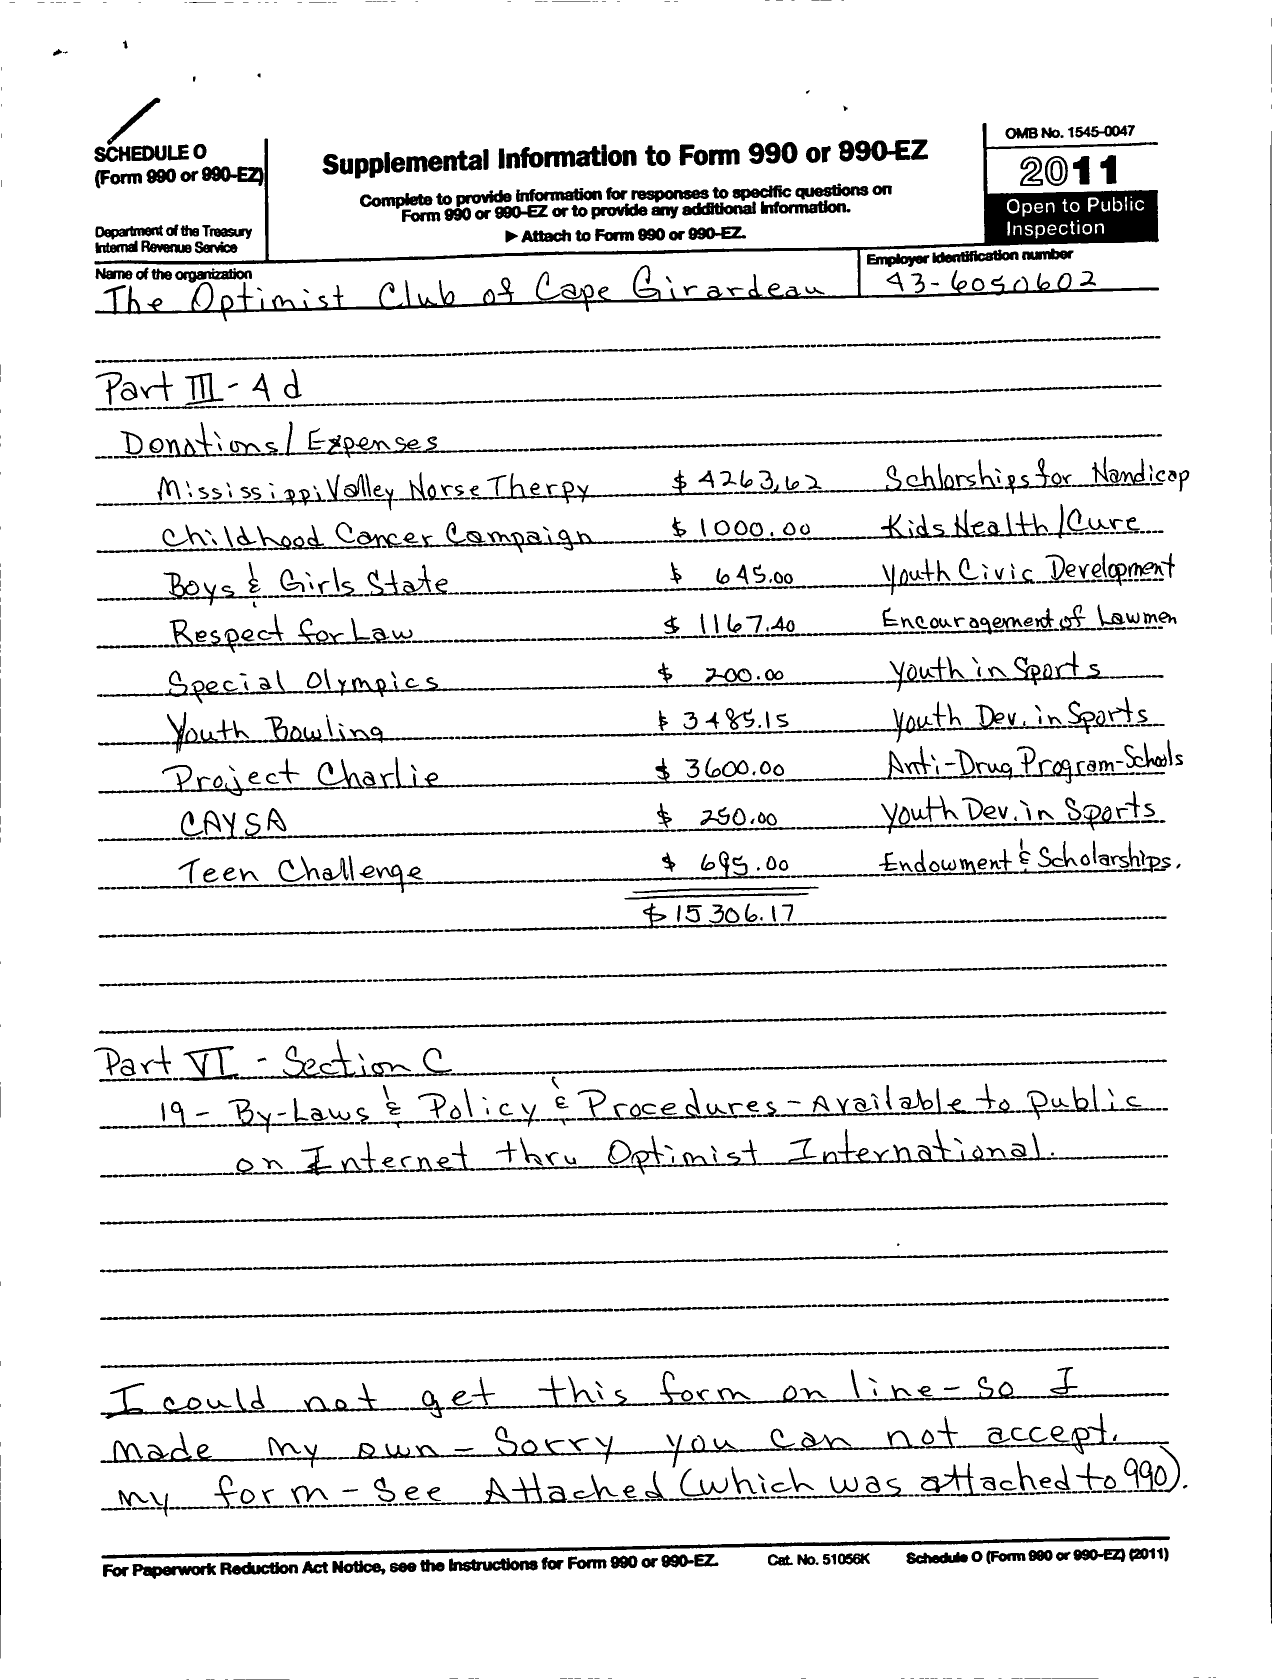 SCHEDULE O
(Form 990 or 990-EZ)
Department of the Treasury
Internal Revenue Service
Supplemental Information to Form 990 or 990-EZ
Complete to provide information for responses to specific questions on
Form 990 or 990-EZ or to provide any additional information.
▶ Attach to Form 990 or 990-EZ.
OMB No. 1545-0047
2011
Open to Public
Inspection
Name of the organization
The Optimist Club of Cape Girardeau
Employer identification number
43-6050602
Part III - 4 d
Donations/Expenses
Mississippi Valley Horse Therpy $ 4263.62 Schlorships for Handicap
Childhood Cancer Campaign $ 1000.00 Kids Health/Cure
Boys & Girls State $ 645.00 Youth Civic Development
Respect for Law $ 1167.40 Encouragement of Lawmen
Special Olympics $ 200.00 Youth in Sports
Youth Bowling $ 3485.15 Youth Dev. in Sports
Project Charlie $ 3600.00 Anti-Drug Program-Schools
CAYSA $ 250.00 Youth Dev. in Sports
Teen Challenge $ 695.00 Endowment & Scholarships.
$ 15306.17
Part VI - Section C
19 - By-Laws & Policy & Procedures - Available to public
on Internet thru Optimist International.
I could not get this form on line - so I
made my own - Sorry you can not accept.
my form - See Attached (which was attached to 990).
For Paperwork Reduction Act Notice, see the Instructions for Form 990 or 990-EZ. Cat. No. 51056K Schedule O (Form 990 or 990-EZ) (2011)